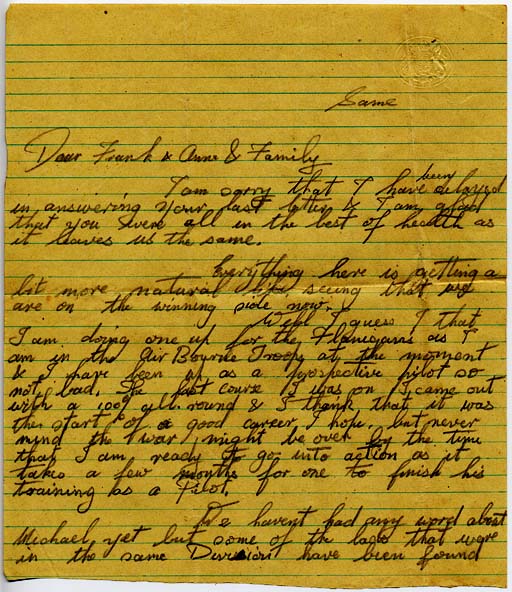 Same
Dear Frank & Anne & Family
been
I am sorry that I have delayed
in answering your last letter & I am glad
that you were all in the best of health as
it leaves us the same.
Everything here is getting a
lot more natural like seeing that we
are on the winning side now.
Well I guess I that
I am doing one up for the Flanigans as I
am in the Air Bourne Troops at the moment
& I have been up as a prospective pilot so
not bad. The last course I was on I came out
with a 100% all round & I think that it was
the start of a good career I hope. but never
mind the war might be over by the time
that I am ready to go into action as it
takes a few months for one to finish his
training as a Pilot.
We havent had any word about
Michael yet but some of the lads that were
in the same Division have been found